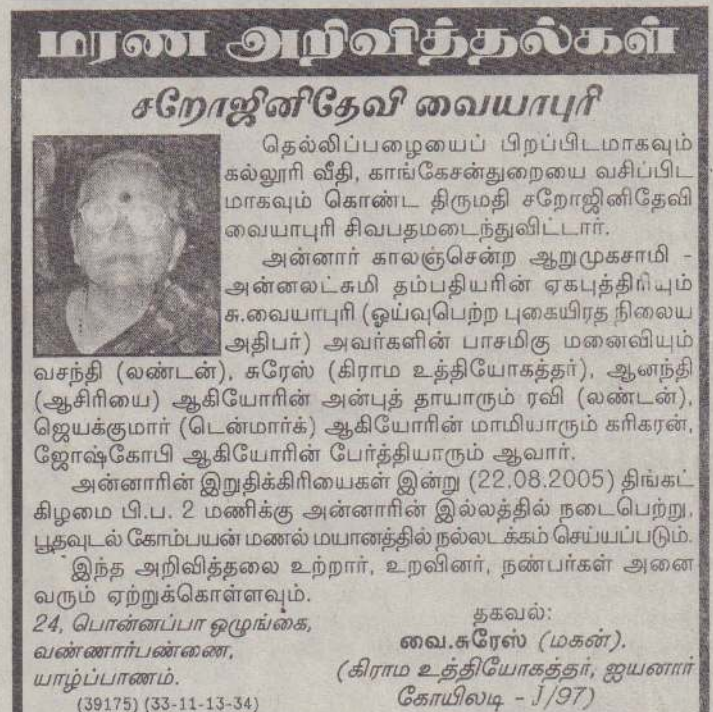 மரண அறிவித்தல்கள்
சறோஜினிதேவி வையாபுரி
தெல்லிப்பழையைப் பிறப்பிடமாகவும்
கல்லூரி வீதி, காங்கேசன்துறையை வசிப்பிட
மாகவும் கொண்ட திருமதி சறோஜினிதேவி
வையாபுரி சிவபதமடைந்துவிட்டார்.
அன்னார் காலஞ்சென்ற ஆறுமுகசாமி -
அன்னலட்சுமி தம்பதியரின் ஏகபுத்திரியும்
சு.வையாபுரி (ஓய்வுபெற்ற புகையிரத நிலைய
அதிபர்) அவர்களின் பாசமிகு மனைவியும்
வசந்தி (லண்டன்), சுரேஸ் (கிராம உத்தியோகத்தர்), ஆனந்தி
(ஆசிரியை) ஆகியோரின் அன்புத் தாயாரும் ரவி (லண்டன்),
ஜெயக்குமார் (டென்மார்க்) ஆகியோரின் மாமியாரும் கரிகரன்,
ஜோஷ்கோபி ஆகியோரின் பேர்த்தியாரும் ஆவார்.
அன்னாரின் இறுதிக்கிரியைகள் இன்று (22.08.2005) திங்கட்
கிழமை பி.ப. 2 மணிக்கு அன்னாரின் இல்லத்தில் நடைபெற்று,
பூதவுடல் கோம்பயன் மணல் மயானத்தில் நல்லடக்கம் செய்யப்படும்.
இந்த அறிவித்தலை உற்றார், உறவினர், நண்பர்கள் அனை
வரும் ஏற்றுக்கொள்ளவும்.
24, பொன்னப்பா ஒழுங்கை,
வண்ணார்பண்ணை,
யாழ்ப்பாணம்.
(39175) (33-11-13-34)
தகவல்:
வை.சுரேஸ் (மகன்).
(கிராம உத்தியோகத்தர், ஐயனார்
கோயிலடி - J/97)